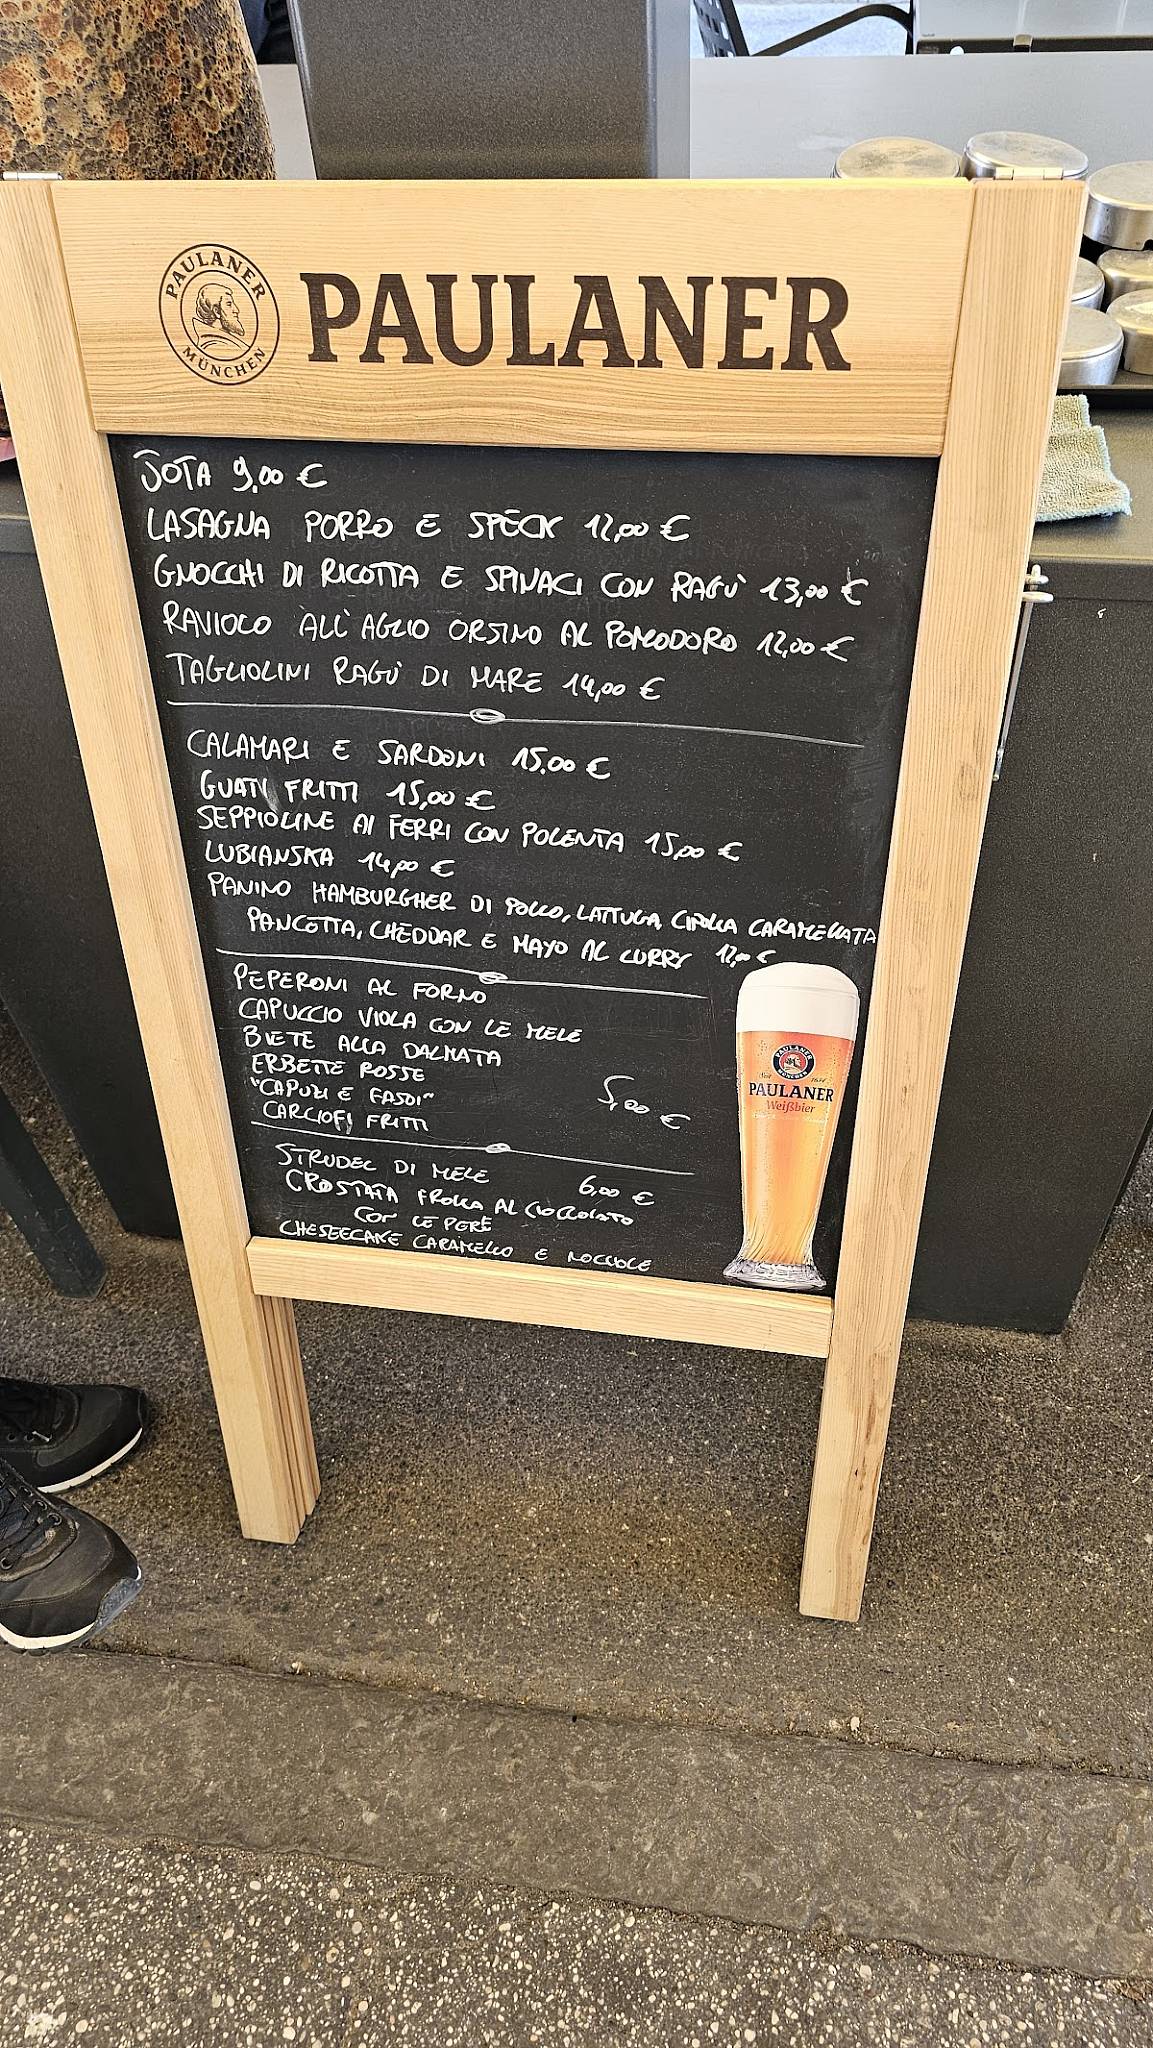 PAULANER
MÜNCHEN
PAULANER
JOTA 9,00 €
LASAGNA PORRO E SPECK 12,00 €
GNOCCHI DI RICOTTA E SPINACI CON RAGÙ 13,00 €
RAVIOLO ALL'AGLIO ORSINO AL POMODORO 12,00 €
TAGLIOLINI RAGÙ DI MARE 14,00 €
CALAMARI E SARDONI 15,00 €
GUATI FRITTI 15,00 €
SEPPIOLINE AI FERRI CON POLENTA 15,00 €
LUBIANSKA 14,00 €
PANINO HAMBURGHER DI POLLO, LATTUGA, CIPOLLA CARAMELLATA
PANCETTA, CHEDDAR E MAYO AL CURRY 12,00 €
PEPERONI AL FORNO
CAPUCCIO VIOLA CON LE MELE
BIETE ALLA DALMATA
ERBETTE ROSSE
"CAPUZI E FASOI"
CARCIOFI FRITTI
5,00 €
STRUDEL DI MELE 6,00 €
CROSTATA FROLLA AL CIOCCOLATO
CON LE PERE
CHESEECAKE CARAMELLO E NOCCIOLE
PAULANER
MÜNCHEN
Seit 1634
PAULANER
Weißbier